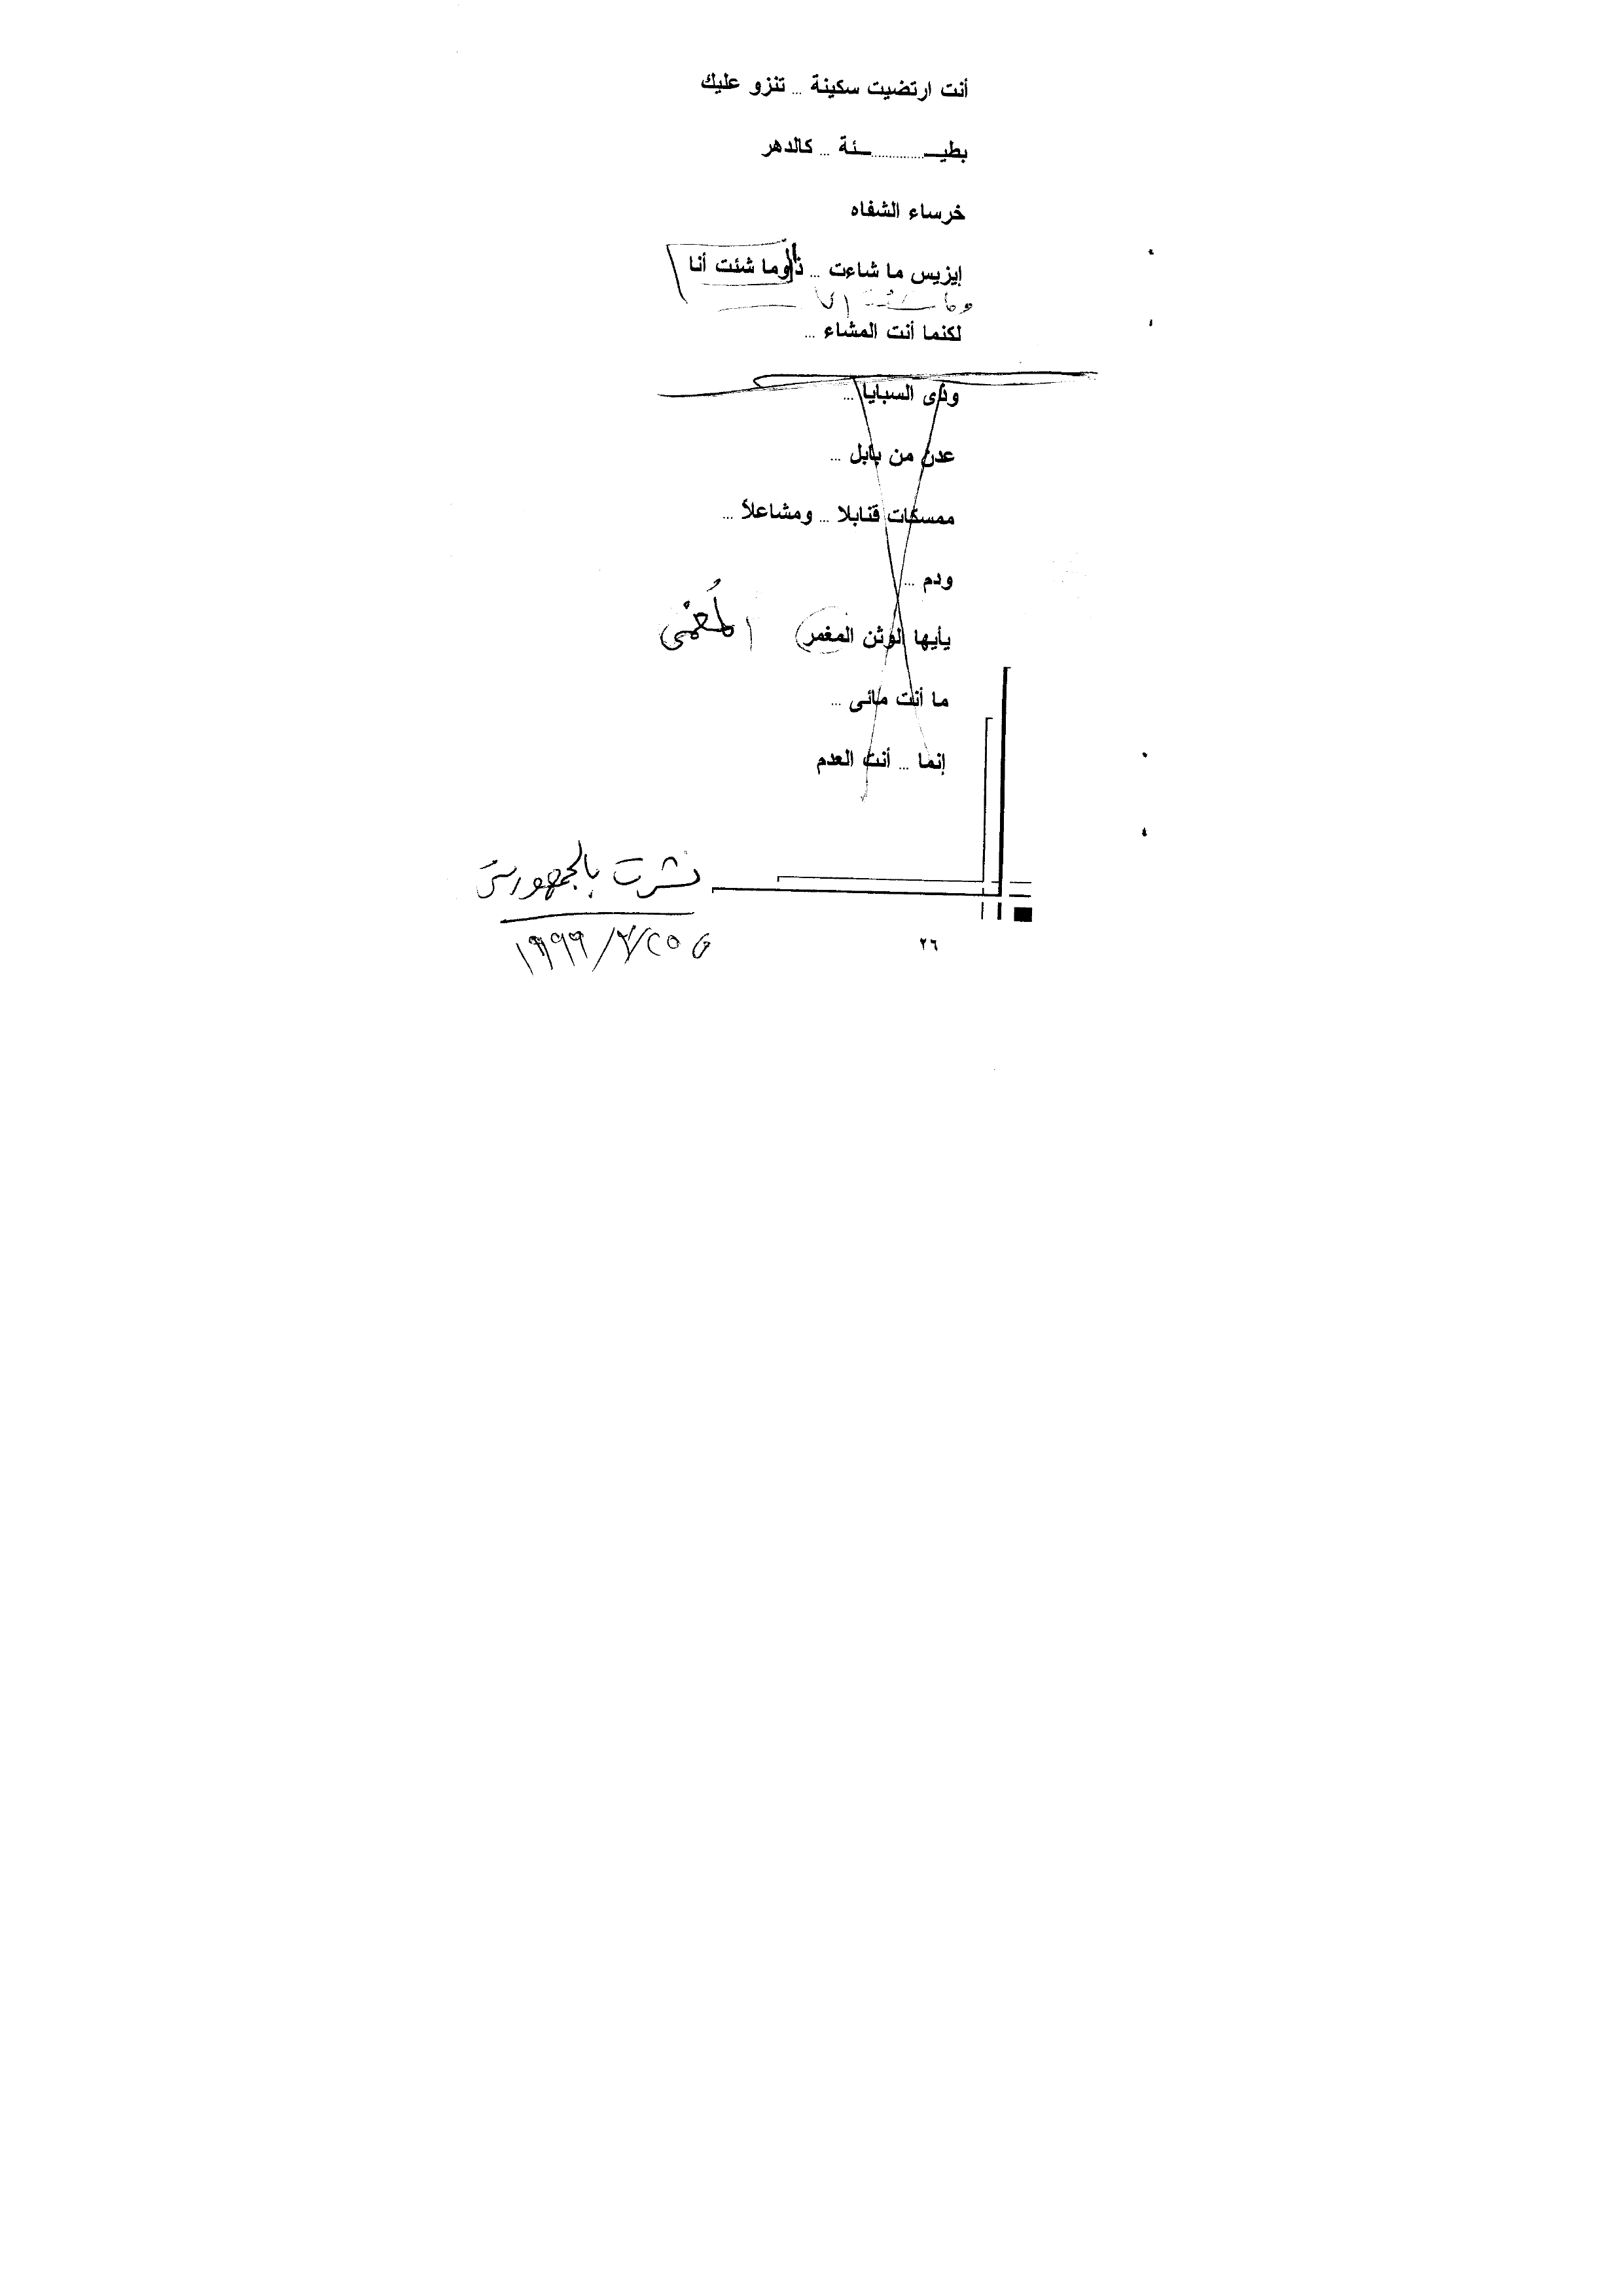 أنت ارتضيت سكينة ... تنزو عليك
بطيـ.............ـئة ... كالدهر
خرساء الشفاه
إيزيس ما شاءت ... ذا وما شئت أنا
وما شئت أنا
لكنما أنت المشاء ...
وذى السبايا ...
عدن من بابل ...
ممسكات قنابلا ... ومشاعلاً ...
ودم ...
يأيها الوثن المغمر المُغمى
ما أنت مائى ...
إنما ... أنت العدم
نشرت بالجمهورية
٢٦